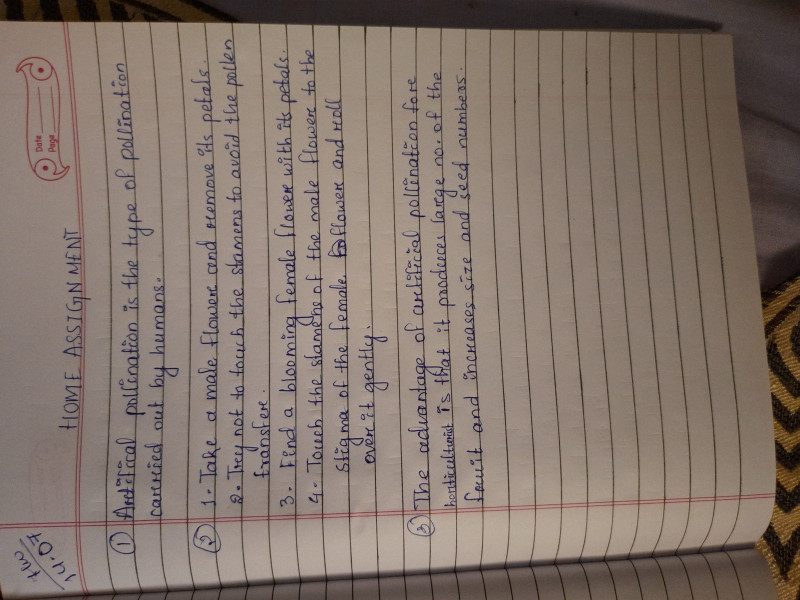 Date
Page
HW
14.07
HOME ASSIGNMENT
① Artifical pollination is the type of pollination
carried out by humans.
② 1- Take a male flower and remove its petals.
2. Try not to touch the stamens to avoid the pollen
transfer.
3. Find a blooming female flower with its petals.
4. Touch the stamens of the male flower to the
stigma of the female flower and roll
over it gently.
③ The advantage of artificial pollination for
horticulturist is that it produces large no. of the
fruit and increases size and seed numbers.